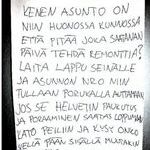 KENEN ASUNTO ON
NIIN HUONOSSA KUNNOSSA
ETTÄ PITÄÄ JOKA SAATANAN
PÄIVÄ TEHDÄ REMONTTIA?
LAITA LAPPU SEINÄLLE
JA ASUNNON NRO NIIN
TULLAAN PORUKALLA AUTTAMAAN
JOS SE HELVETIN PAUKUTUS
JA PORAAMINEN SAATAS LOPPUMAAN
KATO PEILIIN JA KYSY ONKO
SIELLÄ PÄÄN SISÄLLÄ MUUTAKIN